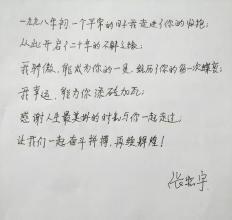 一九九八年初一个平常的日子我走进了你的怀抱；
从此开启了二十年的不解之缘；
我骄傲，能成为你的一员，经历了你的每一次蝶变；
我幸运，能为你添砖加瓦；
感谢人生最美好的时光与你一起走过，
让我们一起奋斗拼搏，再续辉煌！
张 宇